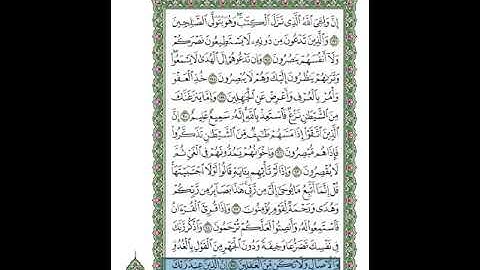 إِنَّ وَلِـِّۧيَ ٱللَّهُ ٱلَّذِي نَزَّلَ ٱلۡكِتَٰبَۖ وَهُوَ يَتَوَلَّى ٱلصَّٰلِحِينَ
١٩٦ وَٱلَّذِينَ تَدۡعُونَ مِن دُونِهِۦ لَا يَسۡتَطِيعُونَ نَصۡرَكُمۡ
وَلَآ أَنفُسَهُمۡ يَنصُرُونَ ١٩٧ وَإِن تَدۡعُوهُمۡ إِلَى ٱلۡهُدَىٰ لَا يَسۡمَعُواْۖ
وَتَرَىٰهُمۡ يَنظُرُونَ إِلَيۡكَ وَهُمۡ لَا يُبۡصِرُونَ ١٩٨ خُذِ ٱلۡعَفۡوَ
وَأۡمُرۡ بِٱلۡعُرۡفِ وَأَعۡرِضۡ عَنِ ٱلۡجَٰهِلِينَ ١٩٩ وَإِمَّا يَنزَغَنَّكَ
مِنَ ٱلشَّيۡطَٰنِ نَزۡغٞ فَٱسۡتَعِذۡ بِٱللَّهِۚ إِنَّهُۥ سَمِيعٌ عَلِيمٌ ٢٠٠ إِنَّ
ٱلَّذِينَ ٱتَّقَوۡاْ إِذَا مَسَّهُمۡ طَٰٓئِفٞ مِّنَ ٱلشَّيۡطَٰنِ تَذَكَّرُواْ
فَإِذَا هُم مُّبۡصِرُونَ ٢٠١ وَإِخۡوَٰنُهُمۡ يَمُدُّونَهُمۡ فِي ٱلۡغَيِّ ثُمَّ
لَا يُقۡصِرُونَ ٢٠٢ وَإِذَا لَمۡ تَأۡتِهِم بِـَٔايَةٖ قَالُواْ لَوۡلَا ٱجۡتَبَيۡتَهَاۚ
قُلۡ إِنَّمَآ أَتَّبِعُ مَا يُوحَىٰٓ إِلَيَّ مِن رَّبِّيۚ هَٰذَا بَصَآئِرُ مِن رَّبِّكُمۡ
وَهُدٗى وَرَحۡمَةٞ لِّقَوۡمٖ يُؤۡمِنُونَ ٢٠٣ وَإِذَا قُرِئَ ٱلۡقُرۡءَانُ
فَٱسۡتَمِعُواْ لَهُۥ وَأَنصِتُواْ لَعَلَّكُمۡ تُرۡحَمُونَ ٢٠٤ وَٱذۡكُر رَّبَّكَ
فِي نَفۡسِكَ تَضَرُّعٗا وَخِيفَةٗ وَدُونَ ٱلۡجَهۡرِ مِنَ ٱلۡقَوۡلِ بِٱلۡغُدُوِّ
وَٱلۡأٓصَالِ وَلَا تَكُن مِّنَ ٱلۡغَٰفِلِينَ ٢٠٥ إِنَّ ٱلَّذِينَ عِندَ رَبِّكَ